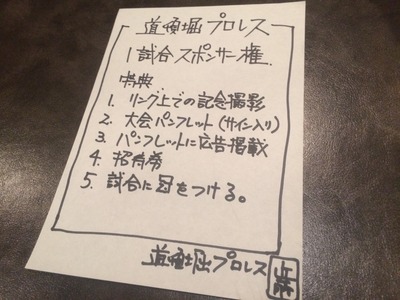 道頓堀プロレス
1試合スポンサー権.
特典
1. リング上での記念撮影
2. 大会パンフレット(サイン入り)
3. パンフレットに広告掲載
4. 招待券
5. 試合に冠をつける。
道頓堀プロレス